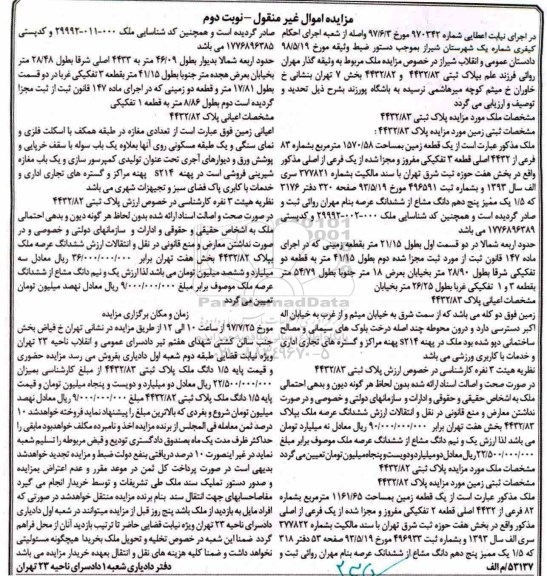 مزایده اموال غیر منقول - نوبت دوم
در اجرای نیابت اعطایی شماره ۹۷۰۳۴۲ مورخ ۹۷/۶/۳ واصله از شعبه اجرای احکام
کیفری شماره یک شهرستان شیراز بموجب دستور ضبط وثیقه مورخ ۹۸/۵/۱۹
دادستان عمومی و انقلاب شیراز در خصوص مزایده ملک مربوط به وثیقه گذار مهران
روائی فرزند علم بپلاک ثبتی ۴۴۳۲/۸۳ و ۴۴۳۲/۸۲ بخش ۷ تهران بنشانی خ
خاوران خ میثم کوچه میرهاشمی نرسیده به باشگاه پورزند بشرح ذیل تحدید و
توصیف و ارزیابی می گردد
مشخصات ملک مورد مزایده پلاک ثبتی ۴۴۳۲/۸۳
مشخصات ثبتی زمین مورد مزایده پلاک ۴۴۳۲/۸۳ :
ملک مذکور عبارت است از یک قطعه زمین بمساحت ۱۵۷۰/۵۸ مترمربع بشماره ۸۳
فرعی از ۴۴۳۲ اصلی قطعه ۳ تفکیکی مفروز و مجزا شده از یک فرعی از اصلی مذکور
واقع در بخش هفت حوزه ثبت شرق تهران با سند مالکیت بشماره ۳۷۷۸۲۱ سری
الف سال ۱۳۹۳ و بشماره ثبت ۴۹۶۵۹۱ مورخ ۹۳/۵/۱۹ صفحه ۳۲۰ دفتر ۲۱۷۶
که ۱/۵ یک ممیز پنج دهم دانگ مشاع از ششدانگ عرصه بنام مهران روائی ثبت و
صادر گردیده است و همچنین کد شناسایی ملک ۰۰۰-۰۰۲-۲۹۹۹۲ و کدپستی
۱۷۷۶۸۹۶۳۸۹ می باشد
حدود اربعه شمالا در دو قسمت اول بطول ۲۱/۱۵ متر بقطعه زمینی که در اجرای
ماده ۱۴۷ قانون ثبت از مورد ثبت مجزا شده دوم بطول ۴۱/۱۵ متر به قطعه دو
تفکیکی شرقا بطول ۲۸/۹۰ متر بخیابان بعرض ۱۸ متر جنوبا بطول ۵۴/۷۹ متر
بقطعه ۳ و ۱ تفکیکی غربا بطول ۲۶/۲۵ متر بخیابان
مشخصات اعیانی پلاک ۴۴۳۲/۸۳
زمین فوق دو کله می باشد که از سمت شرق به خیابان میثم و از غرب به خیابان اله
اکبر دسترسی دارد و درون محوطه چند اصله درخت بلوک های سیمانی و مصالح
ساختمانی دپو شده بود ملک در پهنه S۲۱۴ پهنه مراکز و گستره های تجاری اداری
و خدمات با کاربری ورزشی می باشد
نظریه هیئت ۳ نفره کارشناسی در خصوص ارزش پلاک ثبتی ۴۴۳۲/۸۳
در صورت صحت و اصالت اسناد ارائه شده بدون لحاظ هر گونه دیون و بدهی احتمالی
ملک به اشخاص حقیقی و حقوقی و ادارات و سازمانهای دولتی و خصوصی و در صورت
نداشتن معارض و منع قانونی در نقل و انتقالات ارزش ششدانگ عرصه ملک بپلاک
۴۴۳۲/۸۳ بخش هفت تهران برابر ۹۰/۰۰۰/۰۰۰/۰۰۰ ریال معادل نه میلیارد تومان
می باشد لذا ارزش یک و نیم دانگ مشاع از ششدانگ عرصه ملک موصوف برابر مبلغ
۲۲/۵۰۰/۰۰۰/۰۰۰ ریال معادل دو میلیارد و دویست و پنجاه میلیون تومان تعیین می گردد
مشخصات ملک مورد مزایده پلاک ثبتی ۴۴۳۲/۸۲
مشخصات ثبتی زمین مورد مزایده پلاک ۴۴۳۲/۸۲
ملک مذکور عبارت است از یک قطعه زمین بمساحت ۱۱۶۱/۶۵ مترمربع بشماره
۸۲ فرعی از ۴۴۳۲ اصلی قطعه ۲ تفکیکی مفروز و مجزا شده از یک فرعی از اصلی
مذکور واقع در بخش هفت حوزه ثبت شرق تهران با سند مالکیت بشماره ۳۷۷۸۲۲
سری الف سال ۱۳۹۳ و بشماره ثبت ۴۹۶۹۳۳ مورخ ۹۳/۵/۱۹ صفحه ۵۳ دفتر ۳۱۸
که ۱/۵ یک ممیز پنج دهم دانگ مشاع از ششدانگ عرصه بنام مهران روائی ثبت و
۵۳۱۳۷/م الف
صادر گردیده است و همچنین کد شناسایی ملک ۰۰۰-۰۱۱-۲۹۹۹۲ و کدپستی
۱۷۷۶۸۹۶۳۸۵ می باشد
حدود اربعه شمالا بدیوار بطول ۴۶/۰۹ متر به ۴۴۳۳ اصلی شرقا بطول ۲۸/۴۸ متر
بخیابان بعرض هجده متر جنوبا بطول ۴۱/۱۵ متر بقطعه ۳ تفکیکی غربا در دو قسمت
بطول ۱۷/۸۱ متر و قطعه دو زمینی که در اجرای ماده ۱۴۷ قانون ثبت از ثبت مجزا
گردیده است دوم بطول ۸/۸۶ متر به قطعه ۱ تفکیکی
مشخصات اعیانی پلاک ۴۴۳۲/۸۲
اعیانی زمین فوق عبارت است از تعدادی مغازه در طبقه همکف با اسکلت فلزی و
نمای سنگی و یک طبقه مسکونی روی آنها بعلاوه یک باب سوله با سقف خرپایی و
پوشش ورق و دیوارهای آجری تحت عنوان تولیدی کمپرسور سازی و یک باب مغازه
شیرینی فروشی است در پهنه S۲۱۴ پهنه مراکز و گستره های تجاری اداری و
خدمات با کاربری پاک فضای سبز و تجهیزات شهری می باشد
نظریه هیئت ۳ نفره کارشناسی در خصوص ارزش پلاک ثبتی ۴۴۳۲/۸۲
در صورت صحت و اصالت اسناد ارائه شده بدون لحاظ هر گونه دیون و بدهی احتمالی
ملک به اشخاص حقیقی و حقوقی و ادارات و سازمانهای دولتی و خصوصی و در
صورت نداشتن معارض و منع قانونی در نقل و انتقالات ارزش ششدانگ عرصه ملک
بپلاک ۴۴۳۲/۸۲ بخش هفت تهران برابر ۳۶/۰۰۰/۰۰۰/۰۰۰ ریال معادل سه
میلیارد و ششصد میلیون تومان می باشد لذا ارزش یک و نیم دانگ مشاع از ششدانگ
عرصه ملک موصوف برابر مبلغ ۹/۰۰۰/۰۰۰/۰۰۰ ریال معادل نهصد میلیون تومان
تعیین می گردد
زمان و مکان برگزاری مزایده
مورخ ۹۷/۷/۲۵ از ساعت ۱۰ الی ۱۲ از طریق مزایده در نشانی تهران خ فیاض بخش
جنب سالن کشتی شهدای هفتم تیر دادسرای عمومی و انقلاب ناحیه ۲۳ تهران
ویژه نیابت قضایی طبقه دوم شعبه اول دادیاری بفروش می رسد مزایده حضوری
و قیمت پایه ۱/۵ دانگ ملک پلاک ثبتی ۴۴۳۲/۸۳ از مبلغ کارشناسی بمیزان
۲۲/۵۰۰/۰۰۰/۰۰۰ ریال معادل دو میلیارد و دویست و پنجاه میلیون تومان و قیمت
پایه ۱/۵ دانگ ملک پلاک ثبتی ۴۴۳۲/۸۲ مبلغ ۹/۰۰۰/۰۰۰/۰۰۰ ریال معادل نهصد
میلیون تومان شروع و بفردی که بالاترین مبلغ را پیشنهاد نماید فروخته خواهد شد ۱۰
درصد ثمن معامله فی المجلس از برنده مزایده اخذ و نامبرده مکلف خواهد بود مابقی را
حداکثر ظرف مدت یک ماه بصندوق دادگستری تودیع و قبض مربوطه را تسلیم شعبه
نماید در غیر اینصورت ۱۰ درصد دریافتی بنفع دولت ضبط و مزایده تجدید خواهد شد
بدیهی است در صورت پرداخت کل ثمن در موعد مقرر و عدم اعتراض بمزایده
و صدور دستور تملیک سند ملک طی تشریفات و توسط خریدار انجام می گیرد
مفاصاحسابهای جهت انتقال سند بنام برنده مزایده منتقل خواهد شد در صورتی که
افراد مایل به بازدید از ملک باشد پنج روز قبل از مزایده میتوانند در شعبه اول دادیاری
دادسرای ناحیه ۲۳ تهران ویژه نیابت قضایی حاضر تا ترتیب بازدید آنان از محل فراهم
گردد ضمنا این شعبه در خصوص تخلیه و تحویل ملک بخریدار هیچگونه مسئولیتی
نخواهد داشت و ضمنا کلیه هزینه های نقل و انتقال بعهده خریدار مزایده می باشد
دفتر دادیاری شعبه ۱ دادسرای ناحیه ۲۳ تهران